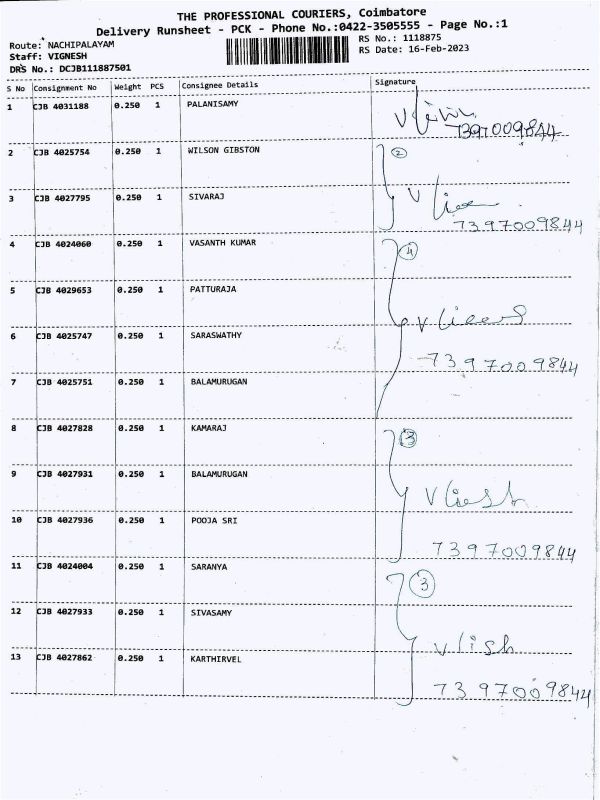 THE PROFESSIONAL COURIERS, Coimbatore
Delivery Runsheet - PCK - Phone No.:0422-3505555 - Page No.:1
Route: NACHIPALAYAM
RS No.: 1118875
Staff: VIGNESH
RS Date: 16-Feb-2023
DRS No.: DCJB111887501
S No Consignment No Weight PCS Consignee Details Signature
1 CJB 4031188 0.250 1 PALANISAMY
7397009844
2 CJB 4025754 0.250 1 WILSON GIBSTON 2
3 CJB 4027795 0.250 1 SIVARAJ
7397009844
4 CJB 4024060 0.250 1 VASANTH KUMAR 4
5 CJB 4029653 0.250 1 PATTURAJA
6 CJB 4025747 0.250 1 SARASWATHY
7397009844
7 CJB 4025751 0.250 1 BALAMURUGAN
8 CJB 4027828 0.250 1 KAMARAJ 3
9 CJB 4027931 0.250 1 BALAMURUGAN
10 CJB 4027936 0.250 1 POOJA SRI
7397009844
11 CJB 4024004 0.250 1 SARANYA 3
12 CJB 4027933 0.250 1 SIVASAMY
13 CJB 4027862 0.250 1 KARTHIRVEL
7397009844